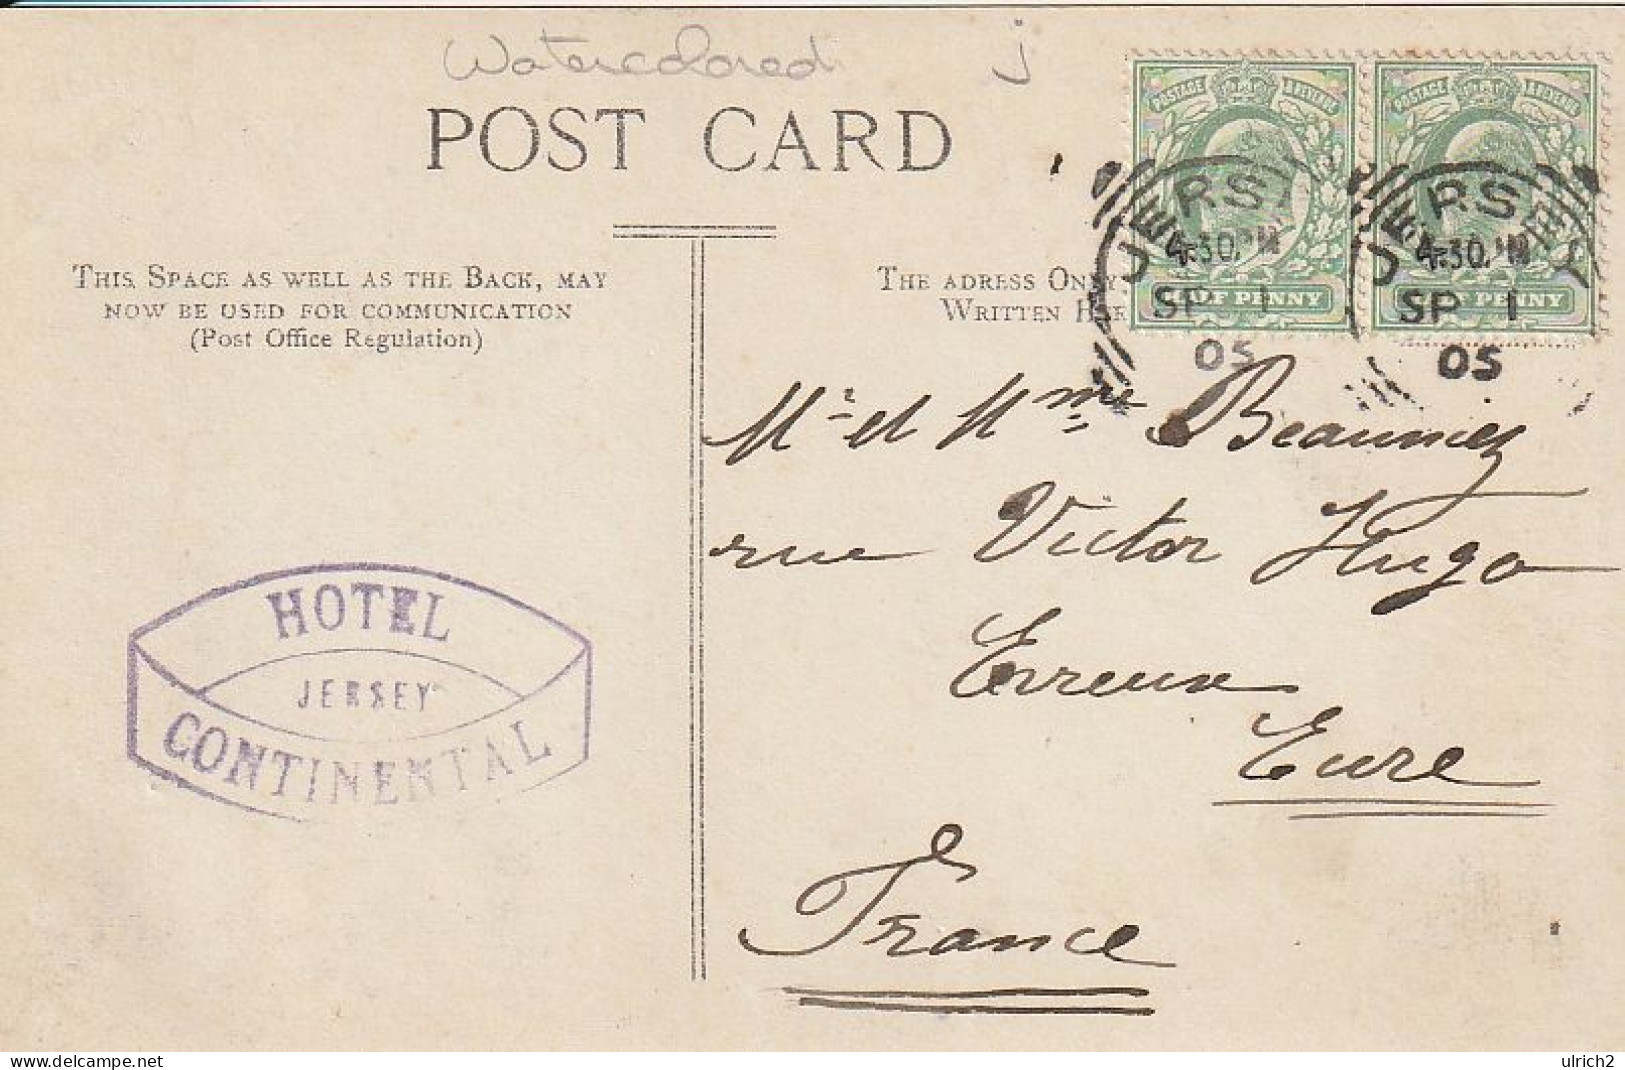 Watercolored j
POST CARD
THIS SPACE AS WELL AS THE BACK, MAY
NOW BE USED FOR COMMUNICATION
(Post Office Regulation)
THE ADRESS ONLY
WRITTEN HER
POSTAGE & REVENUE
POSTAGE & REVENUE
JERSEY
4.30 PM
SP 1
05
HALF PENNY
JERSEY
4.30 PM
SP 1
05
HALF PENNY
Mr et Mme Beaumiez
rue Victor Hugo
Evreux
Eure
France
HOTEL
JERSEY
CONTINENTAL
delcampe.net
ulrich2